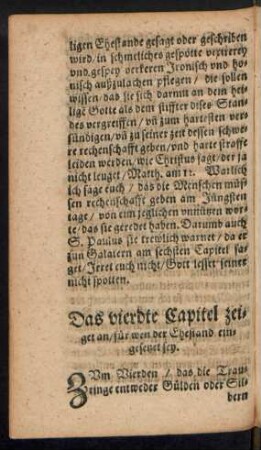 ligen Ehestande gesagt oder geschriben
wird, in schmeliches gespötte vexierey
vnd gespey verkeren Ironisch vnd ho-
nisch außzulachen pflegen / die sollen
wissen / das sie sich darmit an dem hei-
ligē Gotte als dem stiffter dises Stan-
des vergreiffen / vñ zum hartesten ver-
sündigen / vñ zu seiner zeit dessen schwe-
re rechenschafft geben / vnd harte straffe
leiden werden, wie Christus sagt / der ja
nicht leuget / Matth. am 12. Warlich
ich sage euch / das die Menschen müs-
sen rechenschafft geben am Jüngsten
tage / von eim jeglichen vnnützen wor-
te / das sie geredet haben. Darumb auch
S. Paulus sie trewlich warnet / da er
zun Galatern am sechsten Capitel sa-
get / Jrret euch nicht / Gott lesset seiner
nicht spotten.
Das vierdte Capitel zei-
get an / für wen der Ehestand ein-
gesetzt sey.
ZVm Vierden / das die Traw-
ringe entweder Gülden oder Sil-
bern